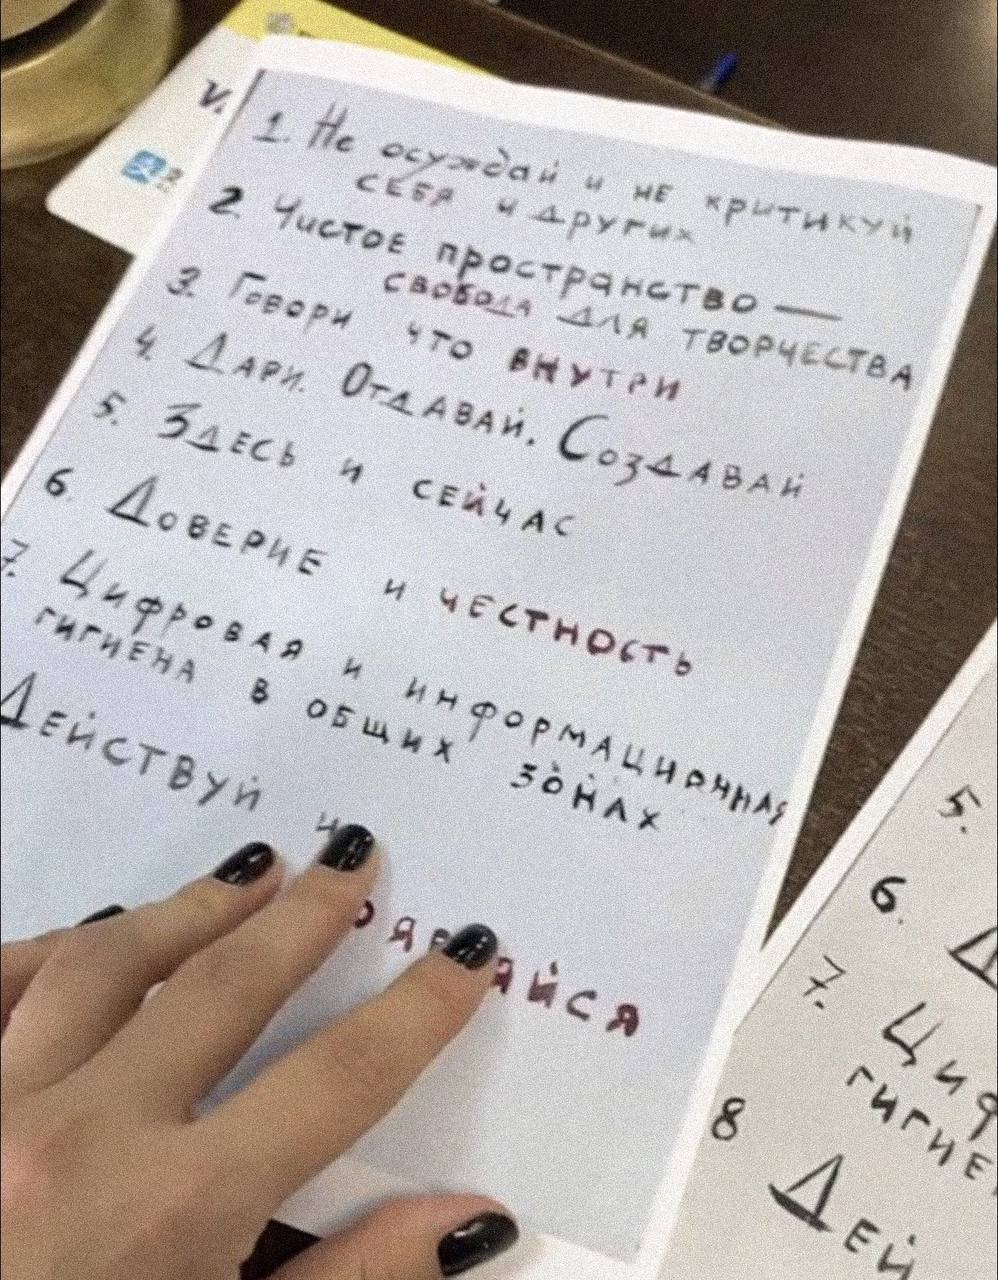 1. Не осуждай и не критикуй
себя и других
2. Чистое пространство —
свобода для творчества
3. Говори что внутри
4. Дари. Отдавай. Создавай
5. Здесь и сейчас
6. Доверие и честность
7. Цифровая и информационная
гигиена в общих зонах
Действуй и
5.
6.
7. Циф
гигие
8 Дей